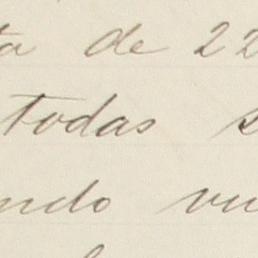 ta de 22
todas s
ndo vu